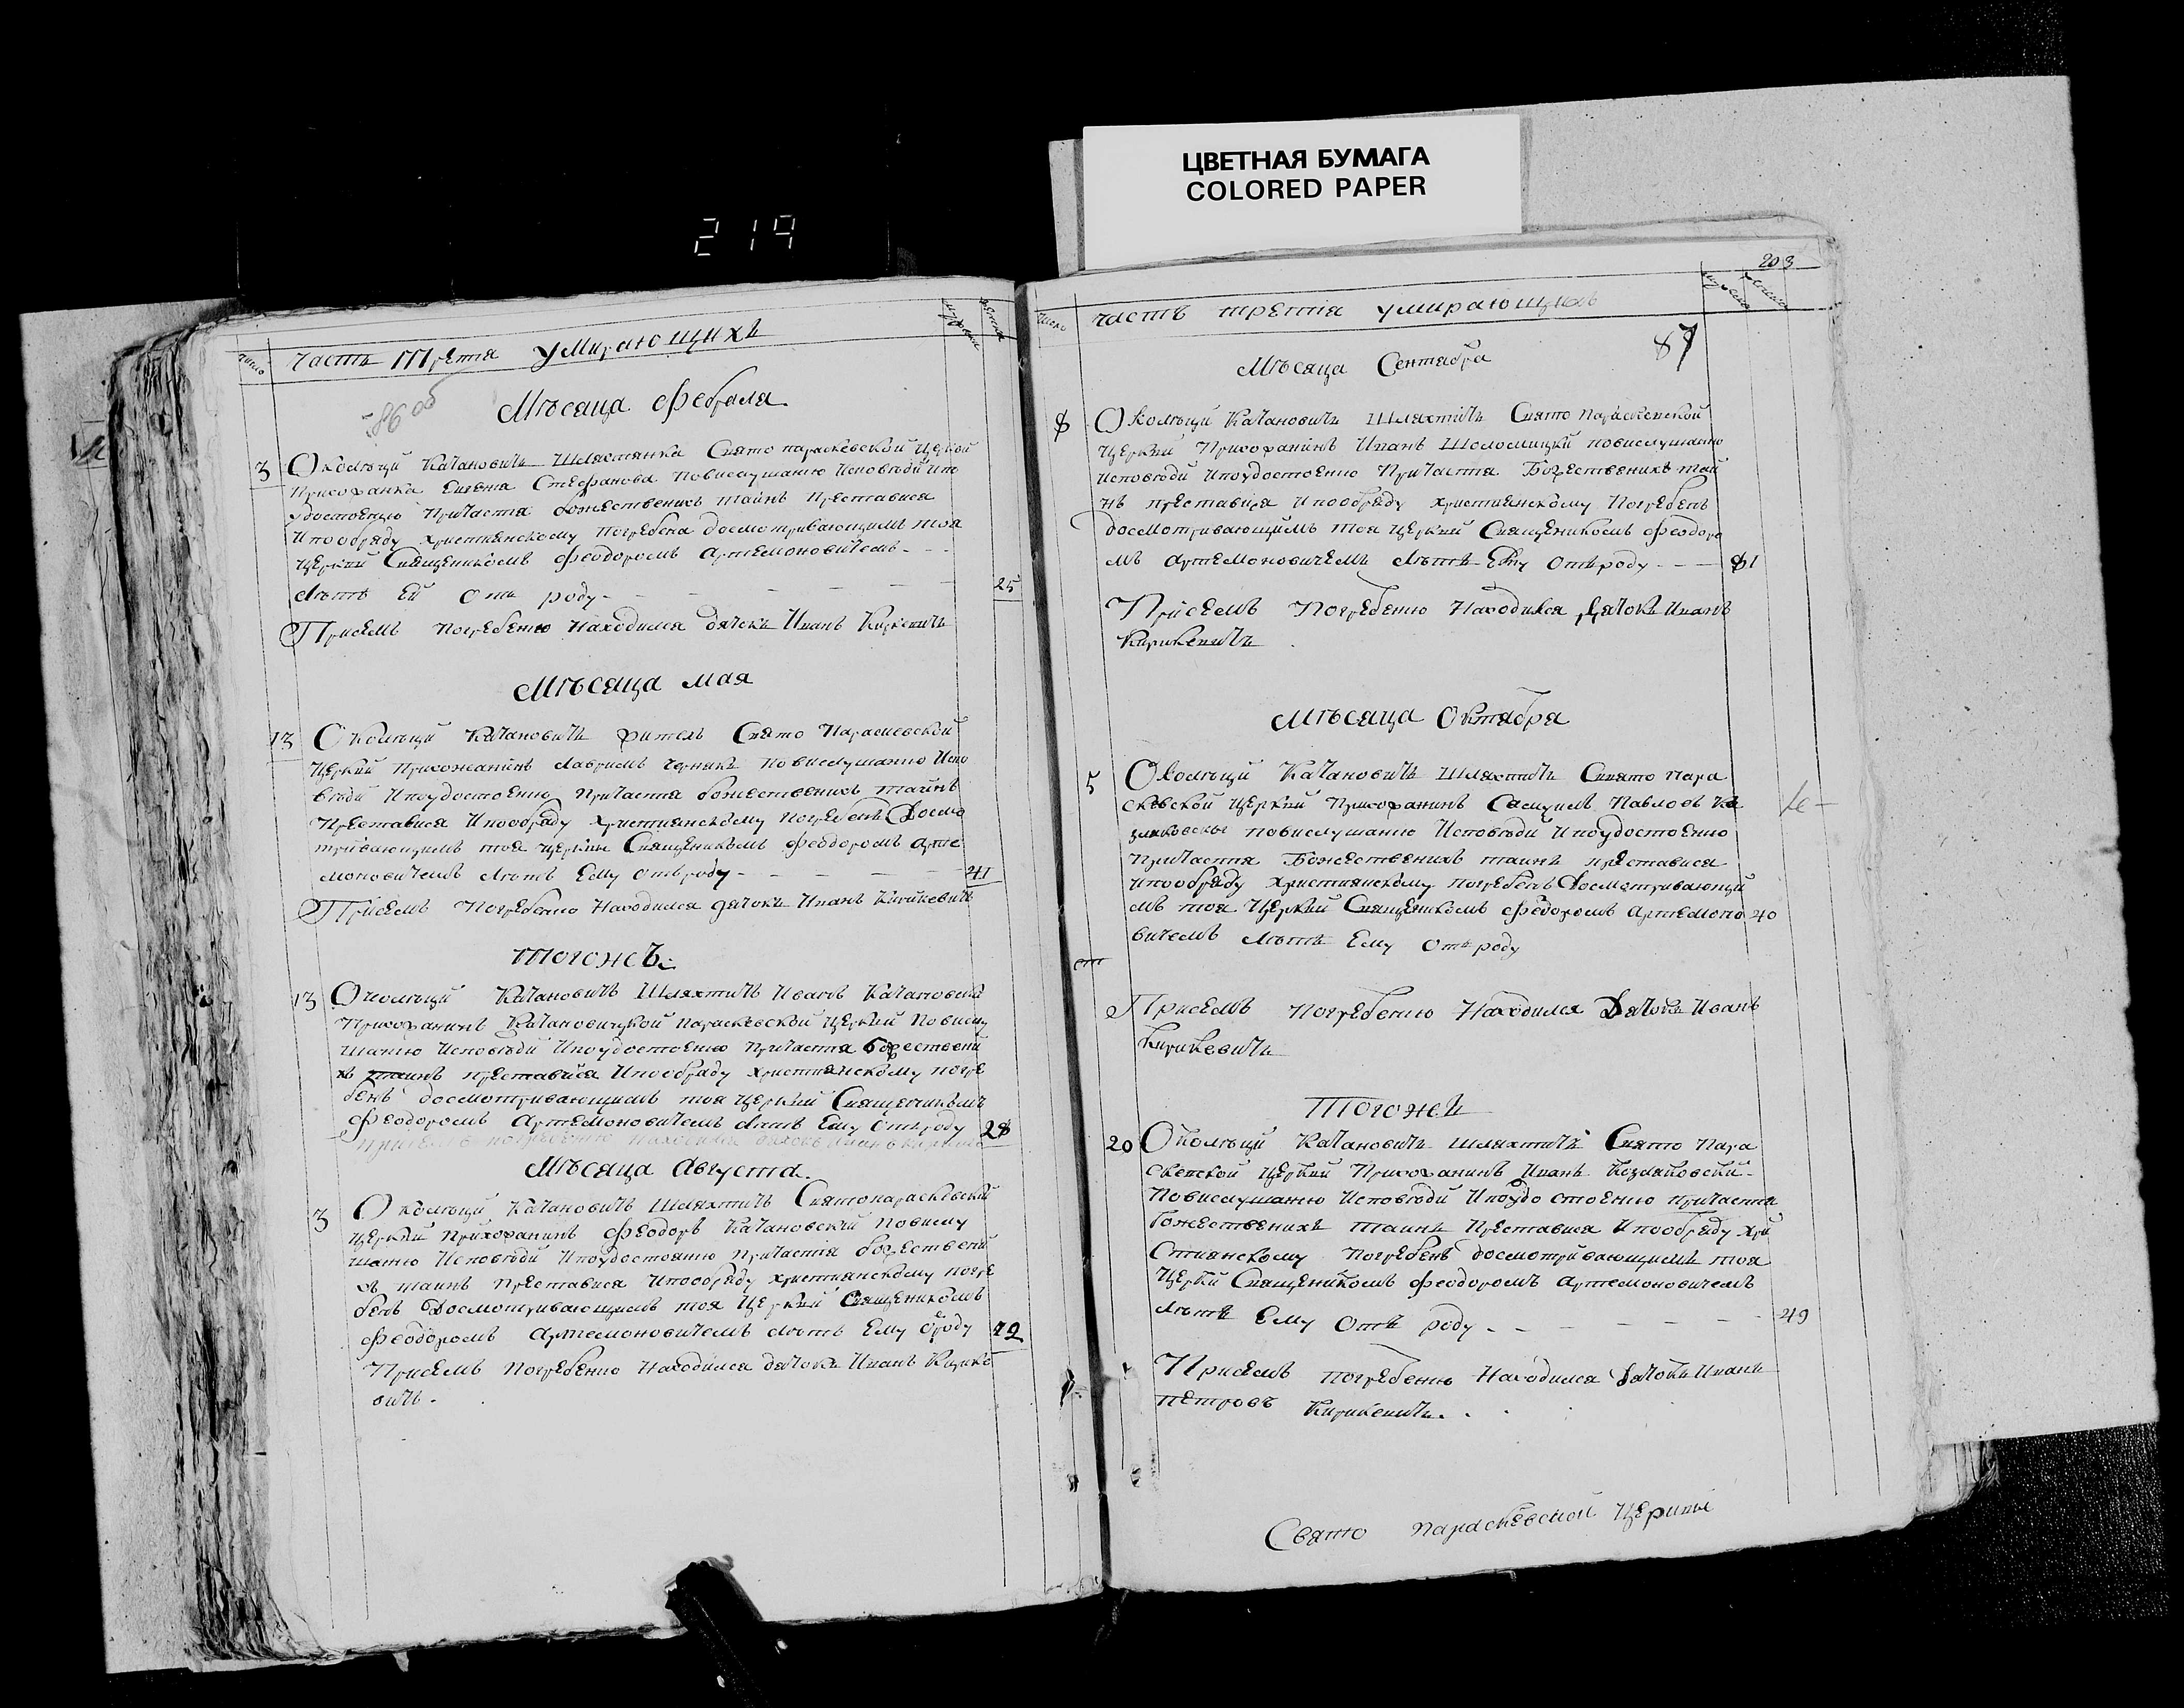 ЦВЕТНАЯ БУМАГА
COLORED PAPER
219
число часть третя умирающихъ
86 об
Мѣсяца Февраля
3 Околѣци Качановичъ Шляхтянка Свято параскевской церкви
Прихожанка Стефанова повислушанию исповѣди ипо
удостоению причастя божественихъ таинъ преставися
ипообряду християнскому погребена досмотривающимъ тоя
церкви Священикомъ Феодоромъ Артемоновичемъ - - -
Лѣтъ ей отъ роду - - - - - 25
Присемъ погребению находился дячокъ Иванъ
Мѣсяца мая
13 Околѣци Качановичъ житель Свято Параскевской
церкви прихожанинъ повислушанию испо
вѣди ипоудостоению причастя божественихъ таинъ
преставися ипообряду християнскому погребенъ досмо
тривающимъ тоя церкви Священикомъ Феодоромъ Арте
моновичемъ лѣтъ ему отъ роду - - - - - 41
Присемъ погребению находился дячокъ Иванъ Кирикевичъ
Тогожъ
13 Околѣци Качановичъ Шляхтичъ Иванъ Качановский
Прихожанинъ Качановицкой параскевской церкви повислу
шанию исповѣди ипоудостоению причастя божествени
хъ таинъ преставися ипообряду християнскому погре
бенъ досмотривающимъ тоя церкви Священикомъ
Феодоромъ Артемоновичемъ лѣтъ ему отъ роду 28
присемъ погребению находился дячокъ Иванъ
Мѣсяца Августа
3 Околѣци Качановичъ Шляхтичъ Святопараскевской
церкви прихожанинъ Феодоръ Качановский повислу
шанию исповѣди ипоудостоянию причастия божествени
хъ таинъ преставися ипообряду християнскому погре
бенъ досмотривающимъ тоя церкви Священикомъ
Феодоромъ Артемоновичемъ лѣтъ ему отроду
Присемъ погребению находился дячокъ Иванъ Кирике
вичъ.
203
число часть третія умирающихъ
87
Мѣсяца Сентября
8 Околѣци Качановичъ Шляхтичъ Свято параскевской
церкви Прихожанинъ Иванъ Шоломицкий повислушанию
исповѣди ипоудостоению причастя Божественихъ таи
нъ преставися ипообряду християнскому погребенъ
досмотривающимъ тоя церкви Священикомъ Феодоро
мъ Артемоновичемъ лѣтъ ему отъ роду - - - 81
Присемъ погребению находился дячокъ Иванъ
Кирикевичъ
Мѣсяца Октября
5 Околѣци Качановичъ Шляхтичъ Свято пара
скевской церкви прихожанинъ Самуилъ Павловъ
повислушанию исповѣди ипоудостоению
причастя Божественихъ таинъ преставися
ипообряду християнскому погребенъ досмотривающи
мъ тоя церкви Священикомъ Феодоромъ Артемоно 40
вичемъ лѣтъ ему отъ роду
Присемъ погребению находился дячокъ Иванъ
Кирикевичъ
Тогожъ
20 Околѣци Качановичъ Шляхтичъ Свято пара
скевской церкви Прихожанинъ Иванъ Козляковский
повислушанию исповѣди ипоудостоению причастя
божественихъ таинъ преставися ипообряду хри
стиянскому погребенъ досмотривающимъ тоя
церкви Священикомъ Феодоромъ Артемоновичемъ
лѣтъ ему отъ роду - - - - - 49
Присемъ погребению находился дячокъ Иванъ
петровъ Кирикевичъ.
Свято параскевской церкви